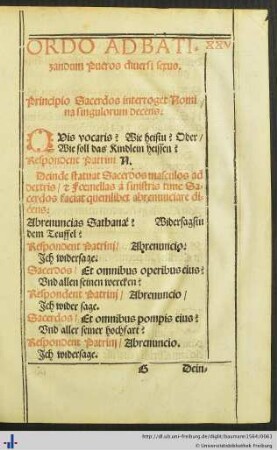 ORDO AD BATI- XXV
zandum Pueros diuersi sexus.
Principio Sacerdos interroget Nomi
na singulorum decens:
QVis vocaris? Wie heistu? Oder/
Wie soll das Kindlein heissen?
Respondent Patrini N.
Deinde statuat Sacerdos masculos ad
dextris/ & Foemellas a sinistris tunc Sa-
cerdos faciat quemlibet abrenunciare di
cens:
Abrenuncias Sathanae? Widersagstu
dem Teuffel?
Respondent Patrini/ Abrenuncio:
Ich widersage.
Sacerdos/ Et omnibus operibus eius?
Vnd allen seinen wercken?
Respondent Patrini/ Abrenuncio/
Ich wider sage.
Sacerdos/ Et omnibus pompis eius?
Vnd aller seiner hochfart?
Respondent Patrini/ Abrenuncio.
Ich widersage.
G Dein-
http://dl.ub.uni-freiburg.de/diglit/baumann1564/0061
© Universitätsbibliothek Freiburg